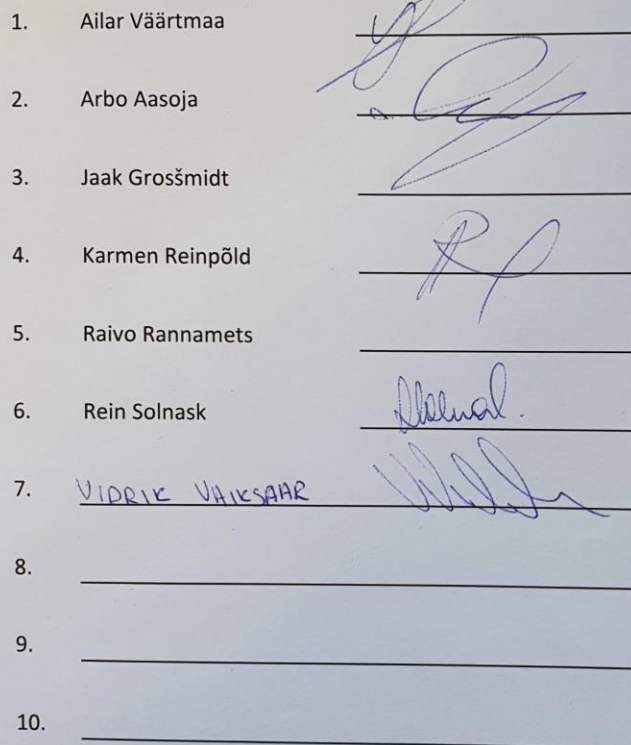 1. Ailar Väärtmaa
2. Arbo Aasoja
3. Jaak Grosšmidt
4. Karmen Reinpõld
5. Raivo Rannamets
6. Rein Solnask
7. VIDRIK VAIKSAAR
8.
9.
10.